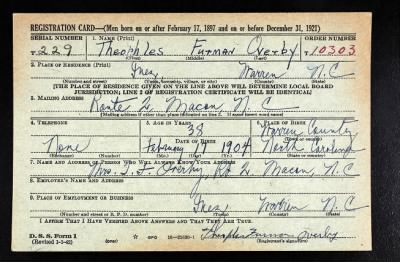 REGISTRATION CARD—(Men born on or after February 17, 1897 and on or before December 31, 1921)
SERIAL NUMBER 1. NAME (Print) ORDER NUMBER
T 229 Theophles Furman Overby T 10303
(First) (Middle) (Last)
2. PLACE OF RESIDENCE (Print)
Inez Warren N.C
(Number and street) (Town, township, village, or city) (County) (State)
[THE PLACE OF RESIDENCE GIVEN ON THE LINE ABOVE WILL DETERMINE LOCAL BOARD
JURISDICTION; LINE 2 OF REGISTRATION CERTIFICATE WILL BE IDENTICAL]
3. MAILING ADDRESS
Route 2, Macon, N.C
[Mailing address if other than place indicated on line 2. If same insert word same]
4. TELEPHONE 5. AGE IN YEARS 6. PLACE OF BIRTH
38 Warren County
DATE OF BIRTH
None February 17 1904 North Carolina
(Exchange) (Number) (Mo.) (Day) (Yr.) (State or country)
7. NAME AND ADDRESS OF PERSON WHO WILL ALWAYS KNOW YOUR ADDRESS
Mrs. T. F. Overby, Rt 2. Macon, N.C
8. EMPLOYER'S NAME AND ADDRESS
9. PLACE OF EMPLOYMENT OR BUSINESS
Inez Warren N.C
(Number and street or R. F. D. number) (Town) (County) (State)
I AFFIRM THAT I HAVE VERIFIED ABOVE ANSWERS AND THAT THEY ARE TRUE.
D. S. S. Form 1
(Revised 1-1-42) (over) GPO Theophles Furman Overby
(Registrant's signature)